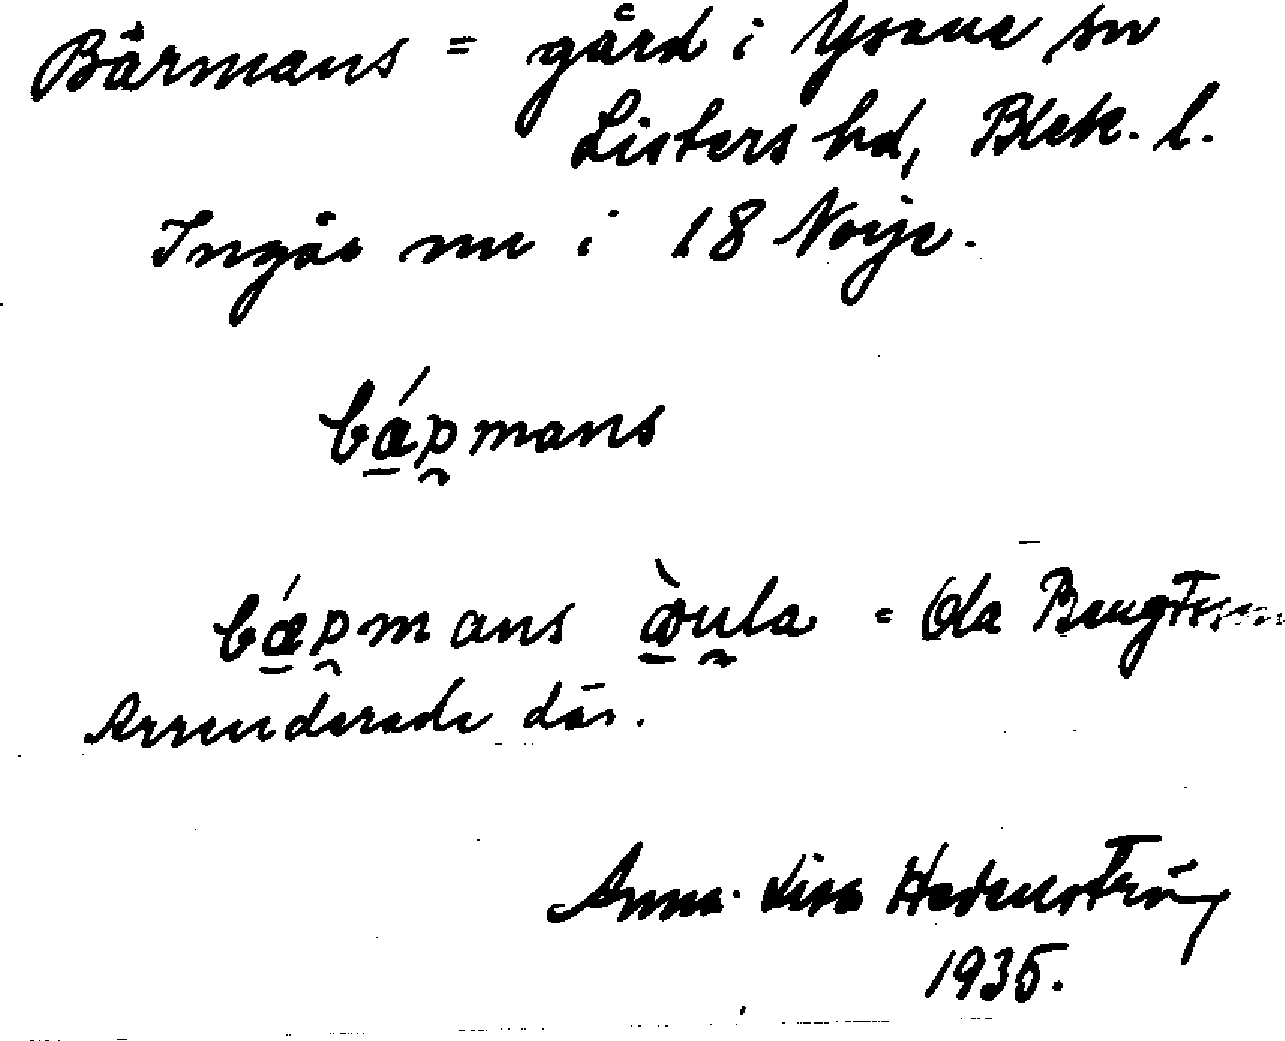 Bärmans = gård i Ysane sn
Listers hd, Blek. l.
Ingår nu i 18 Norje.
bǽpmans
bǽpmans = Ola Bengtsson
Arrenderade där.
Anna-Lisa Hedenström
1935.